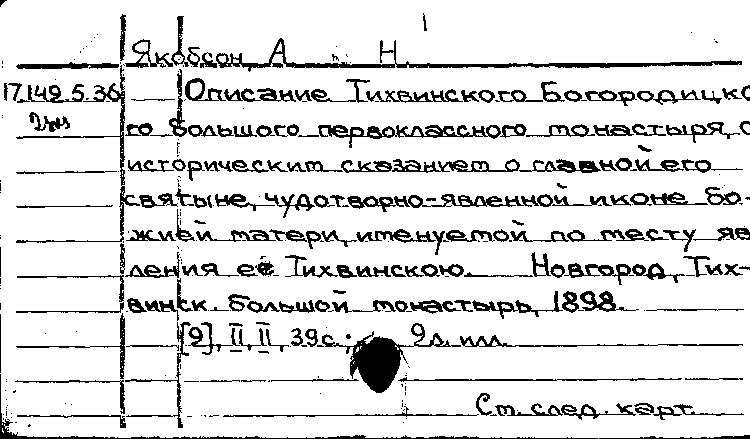 Якобсон, А. Н.
17.149.5.36 Описание Тихвинского Богородицко
го большого первоклассного монастыря, с
историческим сказанием о главной его
святыне, чудотворно-явленной иконе бо-
жией матери, именуемой по месту яв
ления её Тихвинскою. Новгород, Тих-
винск. большой монастырь, 1898.
[9], II, II, 39 с.; 9 л. илл.
См. след. карт.